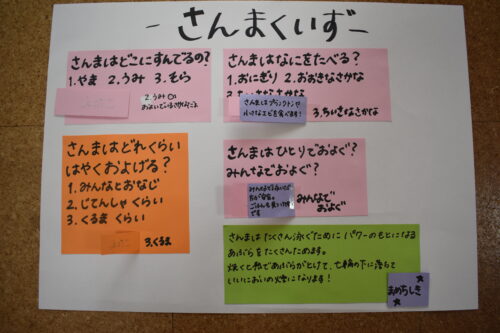 - さんまくいず -
さんまはどこにすんでるの?
1.やま 2.うみ 3.そら
2.うみ
さんまはなにをたべる?
1.おにぎり 2.おおきなさかな
さんまはプランクトンや
小さなエビを食べます!
3.ちいさなさかな
さんまはどれくらい
はやくおよげる?
1.みんなとおなじ
2.じてんしゃくらい
3.くるまくらい
3.くるま
さんまはひとりでおよぐ?
みんなでおよぐ?
みんなで
およぐ
さんまはたくさん泳ぐために パワーのもとになる
あぶらをたくさんためます。
焼くと熱であぶらがとけて、七輪の下に落ちて
いいにおいの煙になります!
まめちしき